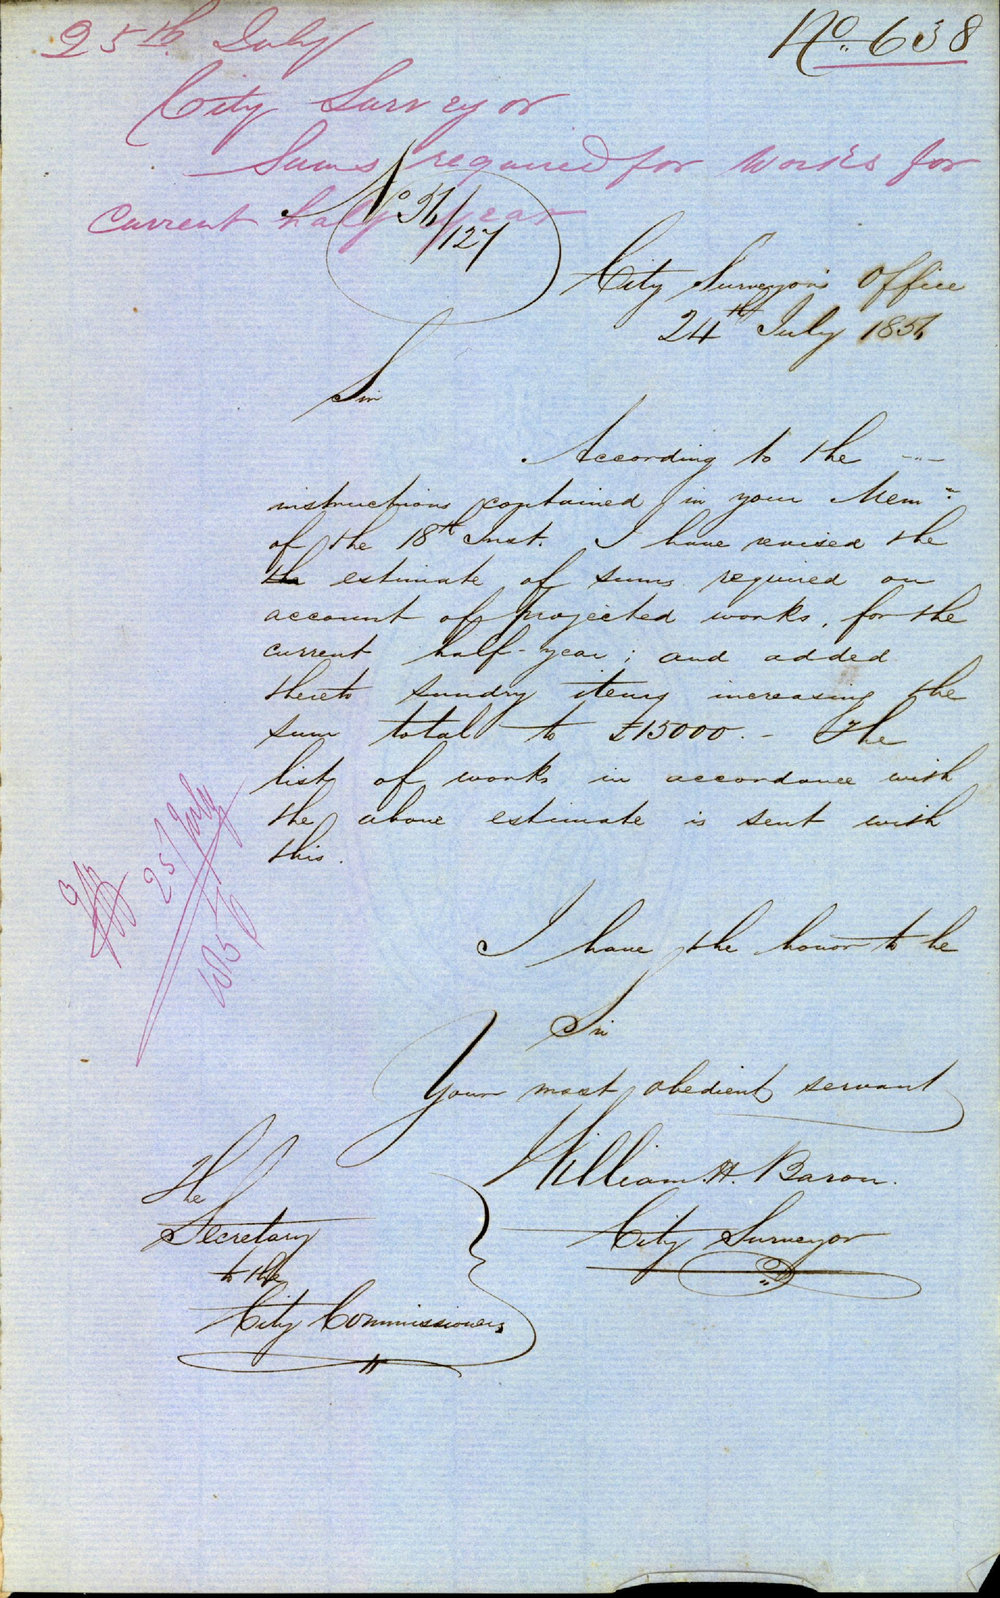 25th July
No. 638
City Surveyor
Sums required for works for
current half year
No 54/127
City Surveyor's Office
24th July 1854
Sir
According to the
instructions contained in your Memm
of the 18th Inst. I have revised the
the estimate of sums required on
account of projected works, for the
current half-year; and added
thereto sundry items increasing the
sum total to £15000. - The
list of works in accordance with
the above estimate is sent with
this.
25 July
I have the honor to be
Sir
Your most obedient servant
William. H. Baron.
City Surveyor
The
Secretary
to the
City Commissioners